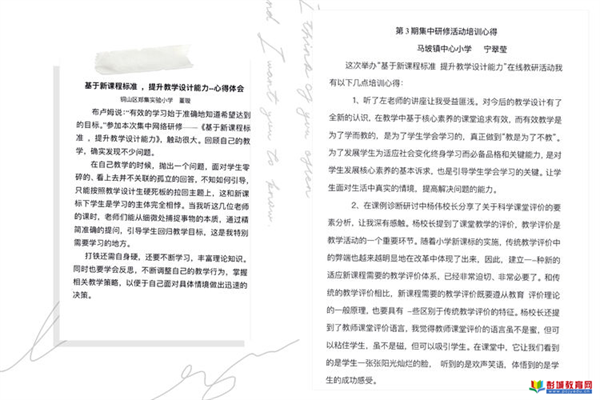 基于新课程标准，提升教学设计能力--心得体会
铜山区郑集实验小学 董璇
布卢姆说:“有效的学习始于准确地知道希望达到
的目标。”参加本次集中网络研修——《基于新课程标
准，提升教学设计能力》，触动很大。回顾自己的教
学，确实发现不少问题。
在自己教学的时候，抛出一个问题，面对学生零
碎的、看上去并不关联的孤立的回答，不知如何引导，
只能按照教学设计生硬死板的拉回主题上，这和新课
标下学生是学习的主体完全相悖。当我听这几位老师
的课时，老师们能从细微处捕捉事物的本质，通过精
简准确的提问，引导学生回归教学目标，这是我特别
需要学习的地方。
打铁还需自身硬，还要不断学习，丰富理论知识。
同时也要学会反思，不断调整自己的教学行为，掌握
相关教学策略，以便于自己面对具体情境做出迅速的
决策。
第3期集中研修活动培训心得
马坡镇中心小学 宁翠莹
这次举办“基于新课程标准 提升教学设计能力”在线教研活动我
有以下几点培训心得：
1、听了左老师的讲座让我受益匪浅，对今后的教学设计有了
全新的认识，在教学中基于核心素养的课堂追求有效，而有效教学是
为了学而教的，是为了学生学会学习的，真正做到“教是为了不教”。
为了发展学生为适应社会变化终身学习而必备品格和关键能力，是对
学生发展核心素养的基本诉求，也是引导学生学会学习的关键。让学
生面对生活中真实的情境，提高解决问题的能力。
2、在课例诊断研讨中杨伟校长分享了关于科学课堂评价的要
素分析，让我深有感触。杨校长提到了课堂教学的评价，教学评价是
教学活动的一个重要环节。随着小学新课标的实施，传统教学评价中
的弊端也越来越明显地在改革中体现了出来，因此，建立一-种新的
适应新课程需要的教学评价体系，已经非常迫切、非常必要了。和传
统的教学评价相比，新课程需要的教学评价既要遵从教育 评价理论
的一般原理，也要具有 -些区别于传统教学评价的特征。杨校长还提
到了教师课堂评价语言，我觉得教师课堂评价的语言虽不是蜜，但可
以粘住学生，虽不是磁，但可以吸引学生。在课堂中，它让我们看到
的是学生一张张阳光灿烂的脸， 听到的是欢声笑语，体悟到的是学
生的成功感受。
I think of you often
and I want you to know
彭城教育网